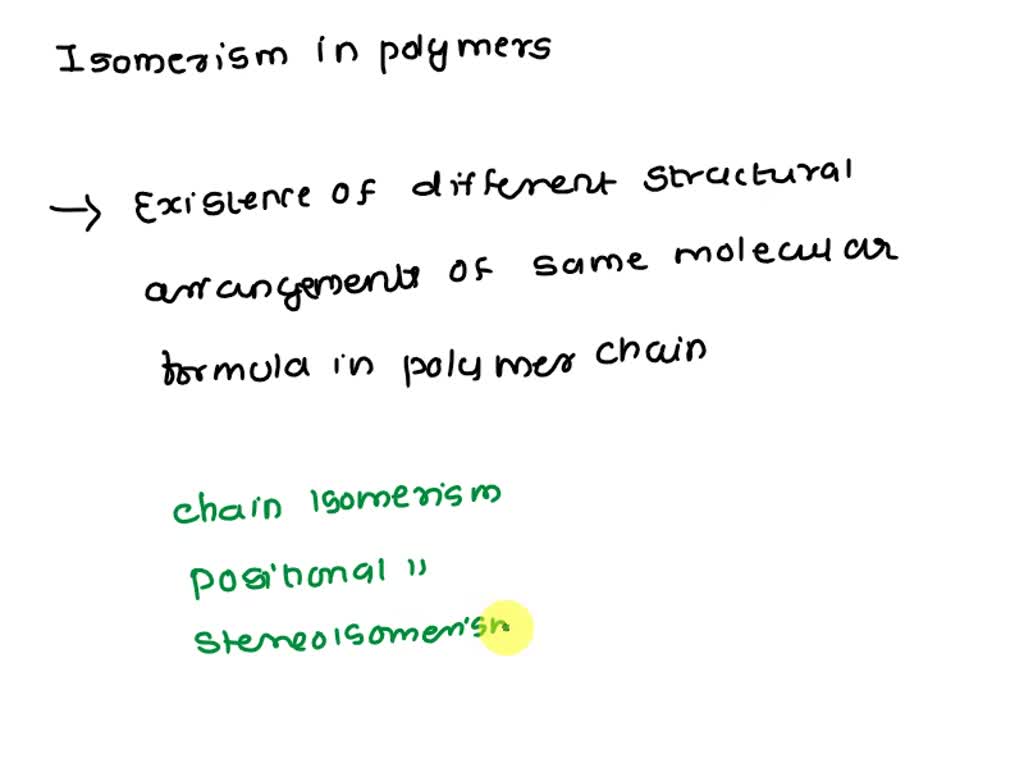 Isomerism in polymers
→ Existence of different structural
arrangements of same molecular
formula in polymer chain
chain Isomerism
positional "
stereoisomerism